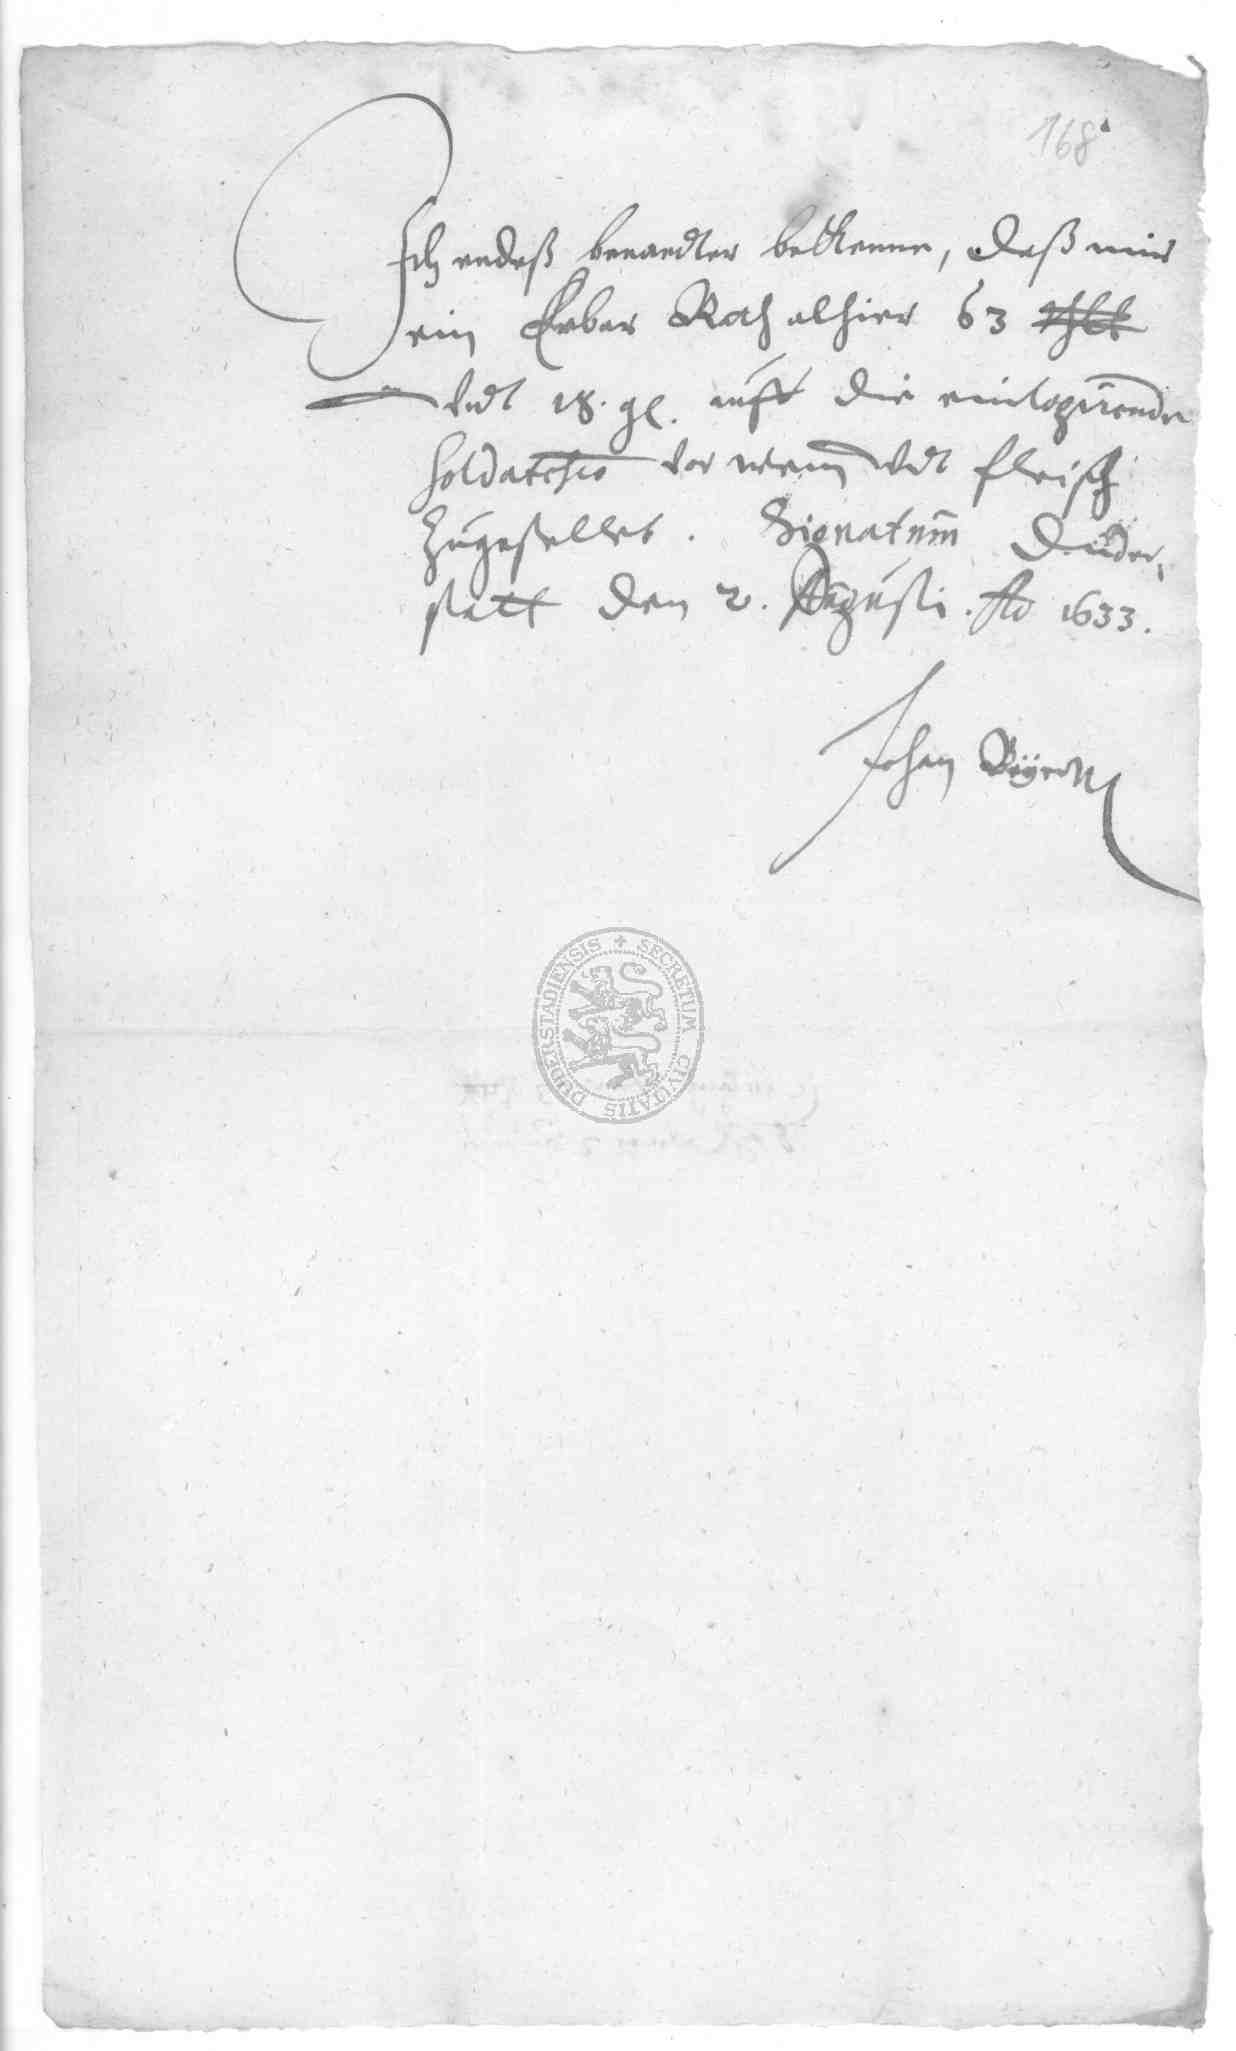 168
Ich endeß benandter bekenne, daß mir
ein Erbar Rath alhier 63 thlr
vndt 18. gl. auff die einlogirende
soldatesco vor wein vndt fleisch
zugestellet. Signatum Duder,
statt den 2. Augusti. Ao 1633.
Johan
SECRETUM CIVITATIS DUDERSTADIENSIS